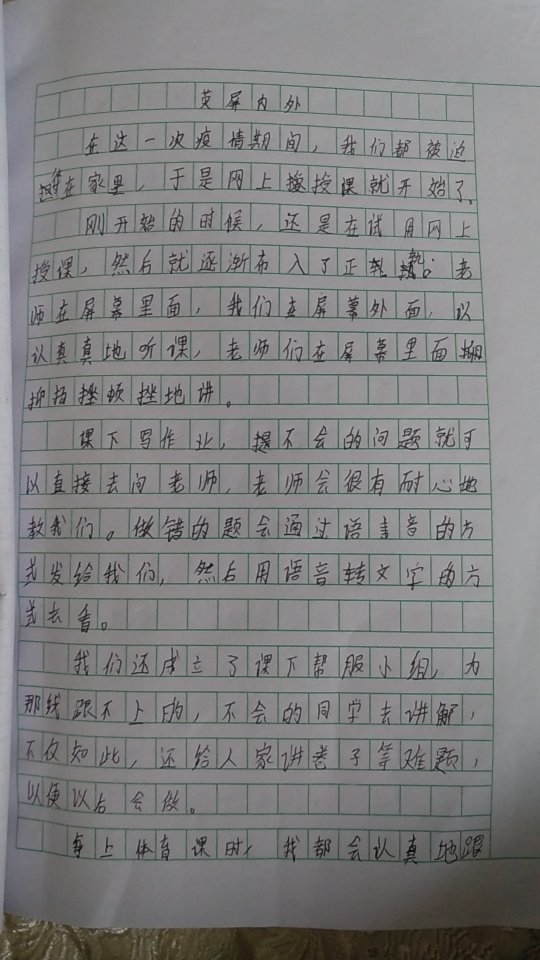 荧屏内外
在这一次疫情期间，我们都被迫
待在家里，于是网上授课就开始了。
刚开始的时候，还是在试用网上
授课，然后就逐渐布入了正轨。老
师在屏幕里面，我们在屏幕外面，以
认真真地听课，老师们在屏幕里面
抑扬挫顿挫地讲。
课下写作业，提不会的问题就可
以直接去问老师，老师会很有耐心地
教我们。做错的题会通过语言音的方
式发给我们，然后用语音转文字的方
式去看。
我们还成立了课下帮服小组，为
那线跟不上的，不会的同学去讲解，
不仅如此，还给人家讲卷子等难题，
以便以后会做。
每上体育课时，我都会认真地跟